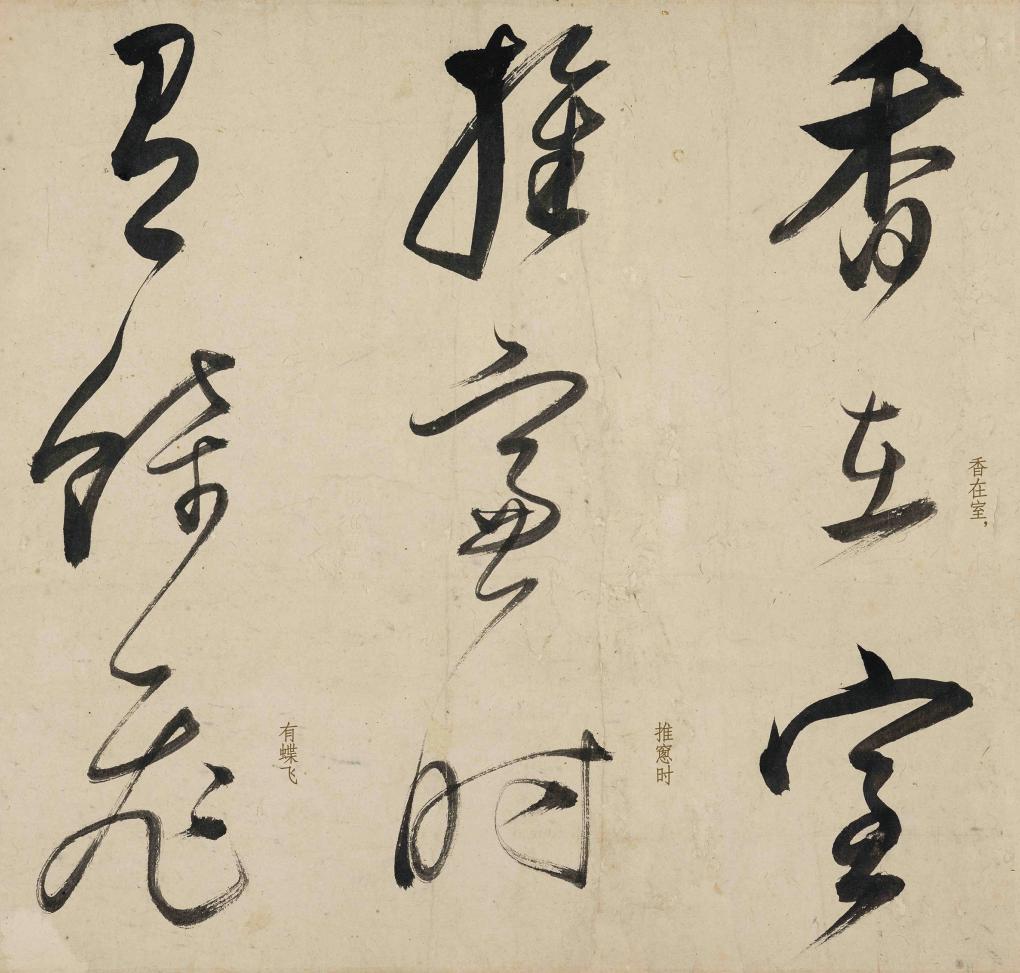 香在室，
香在室
推窻时
推窻時
有蝶飞
有蝶飛